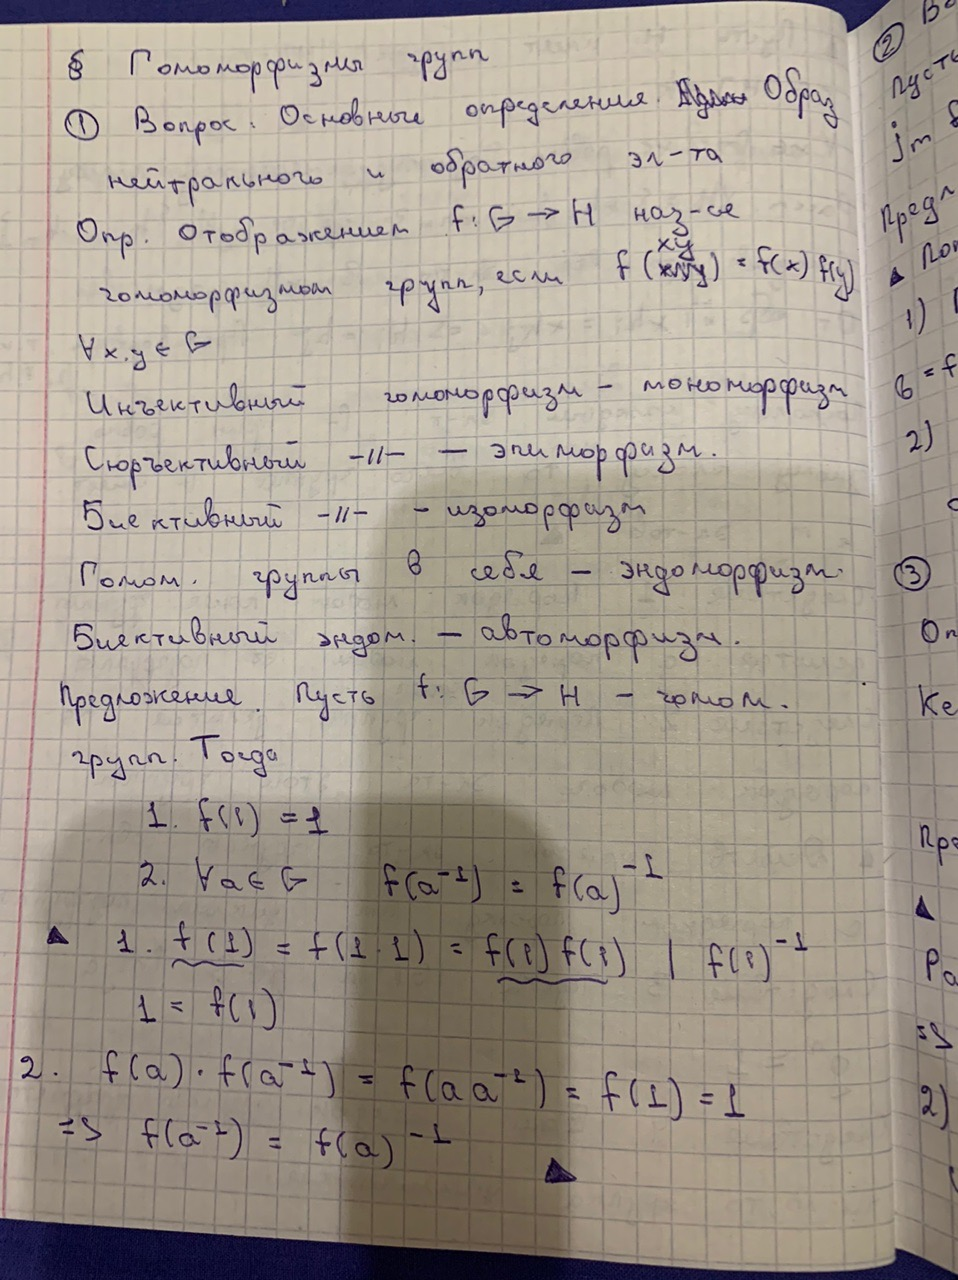 § Гомоморфизмы групп
① Вопрос. Основные определения. Образ
нейтрального и обратного эл-та
Опр. Отображением f: G → H наз-се
гомоморфизмом групп, если f (xy) = f(x) f(y)
∀ x, y ∈ G
Инъективный гомоморфизм – мономорфизм
Сюръективный -//- – эпиморфизм.
Биективный -//- – изоморфизм
Гомом. группы в себя – эндоморфизм.
Биективный эндом. – автоморфизм.
Предложение. Пусть f: G → H – гомом.
групп. Тогда
1. f(1) = 1
2. ∀ a ∈ G f(a⁻¹) = f(a)⁻¹
▲ 1. f(1) = f(1·1) = f(1) f(1) | f(1)⁻¹
1 = f(1)
2. f(a) · f(a⁻¹) = f(a a⁻¹) = f(1) = 1
=> f(a⁻¹) = f(a)⁻¹
▲
②
Пусть
Jm
Предл
▲
1)
= f
2)
③
Оп
Ke
Пре
▲
Ра
=>
2)